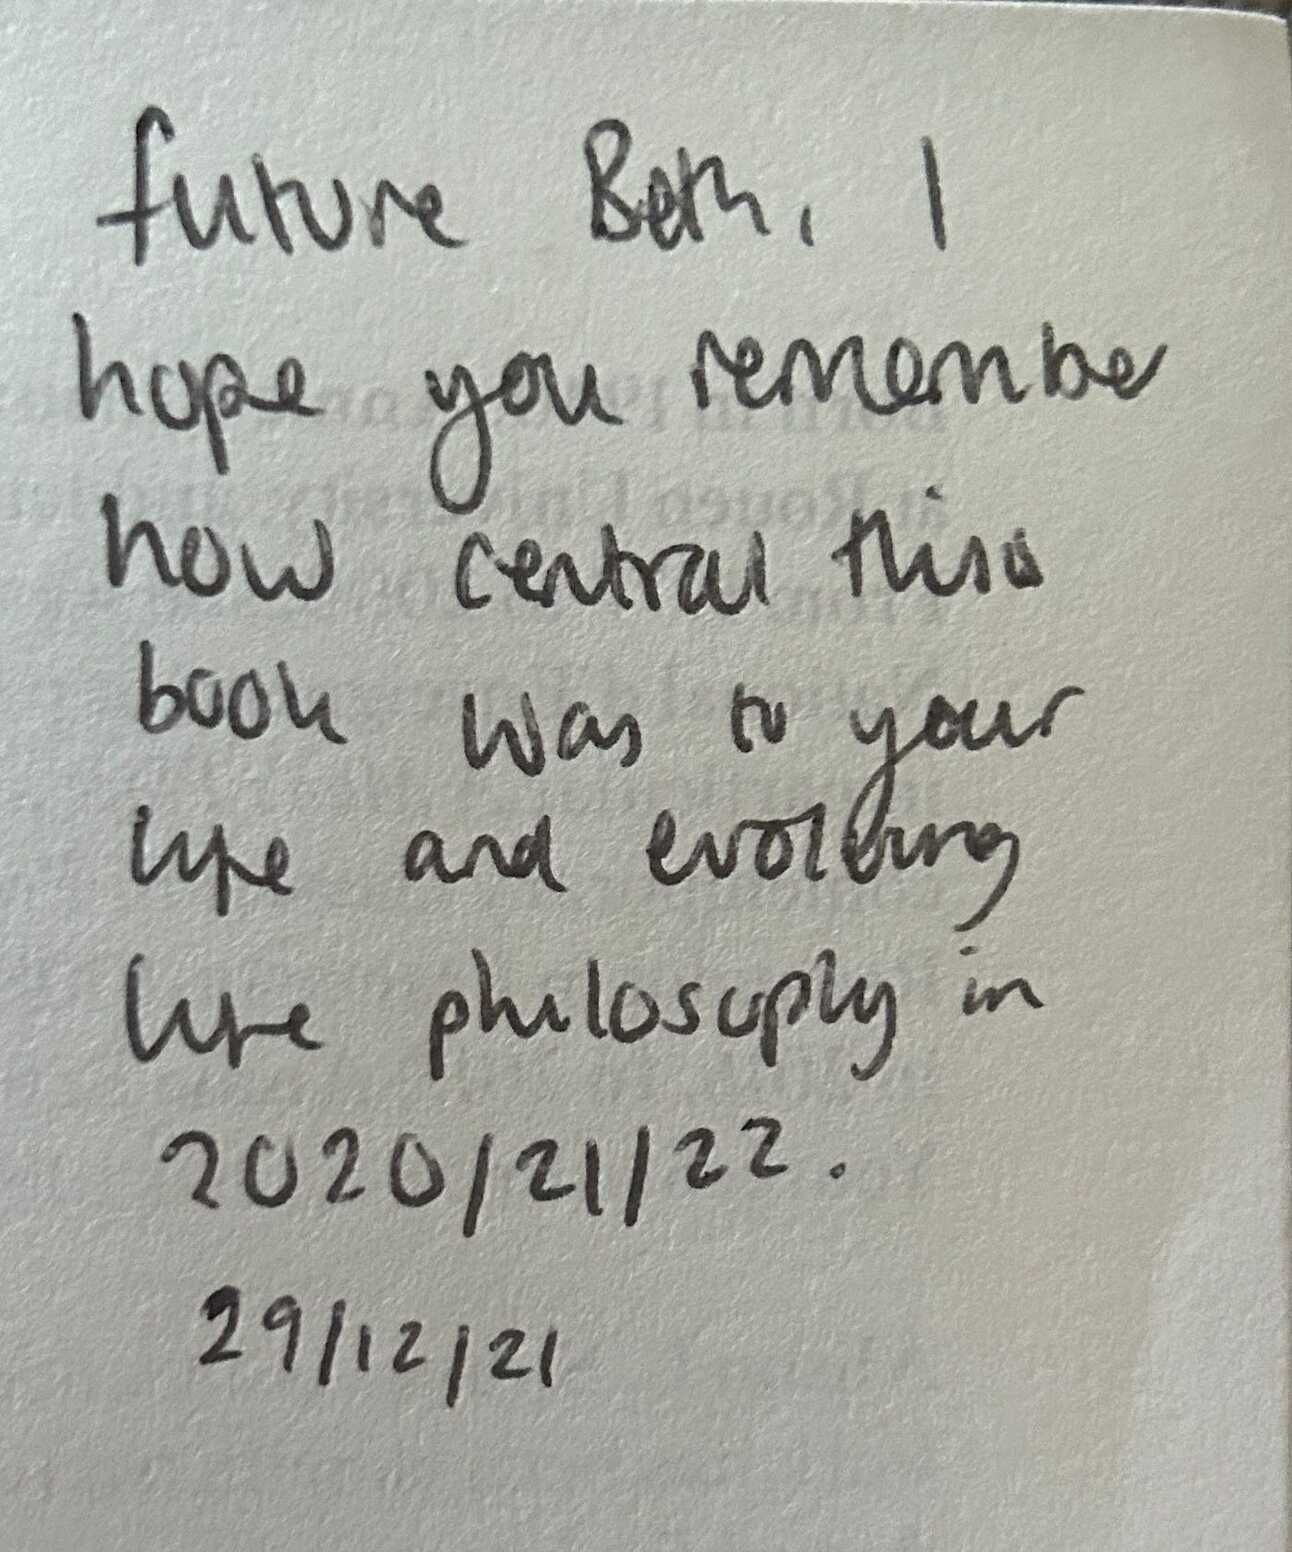 future Beth, I
hope you remember
how central this
book was to your
life and evolving
life philosophy in
2020/21/22.
29/12/21